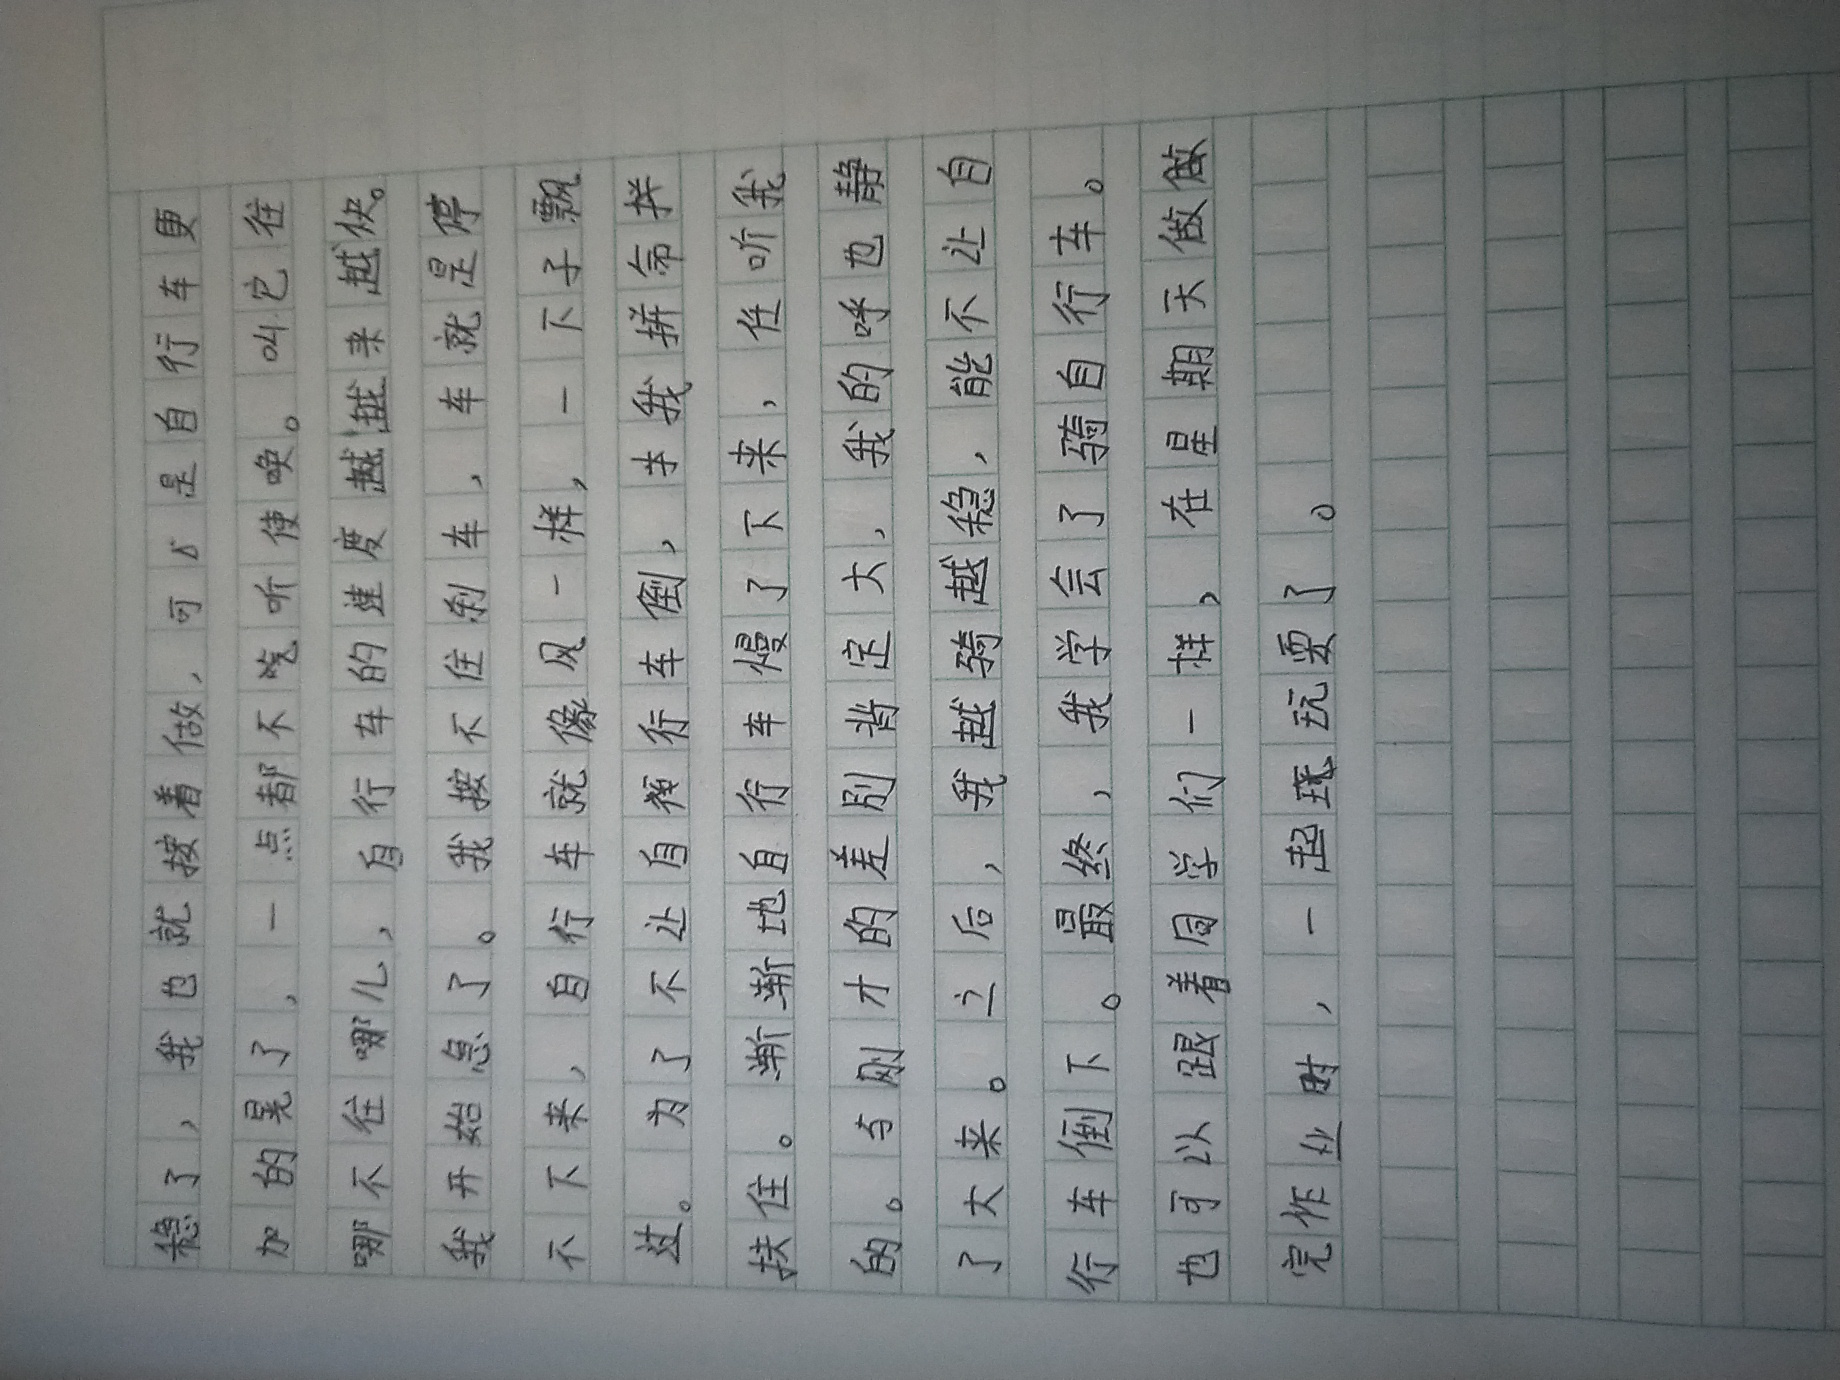 稳了，我也就按着做，可是自行车更
加的晃了，一点都不吃听使唤。叫它往
哪不往哪儿，自行车的速度越越来越快。
我开始急了。我按不住刹车，车就是停
不下来，自行车就像风一样，一下子飘
过。为了不让自行车倒，我拼命拌
扶住。渐渐地自行车慢了下来，任听我
的。与刚才的差别背定大，我的呼也静
了大来。之后，我越骑越稳，能不让自
行车倒下。最终，我学会了骑自行车。
也可以跟着同学们一样，在星期天做做
完作业时，一起玩耍了。